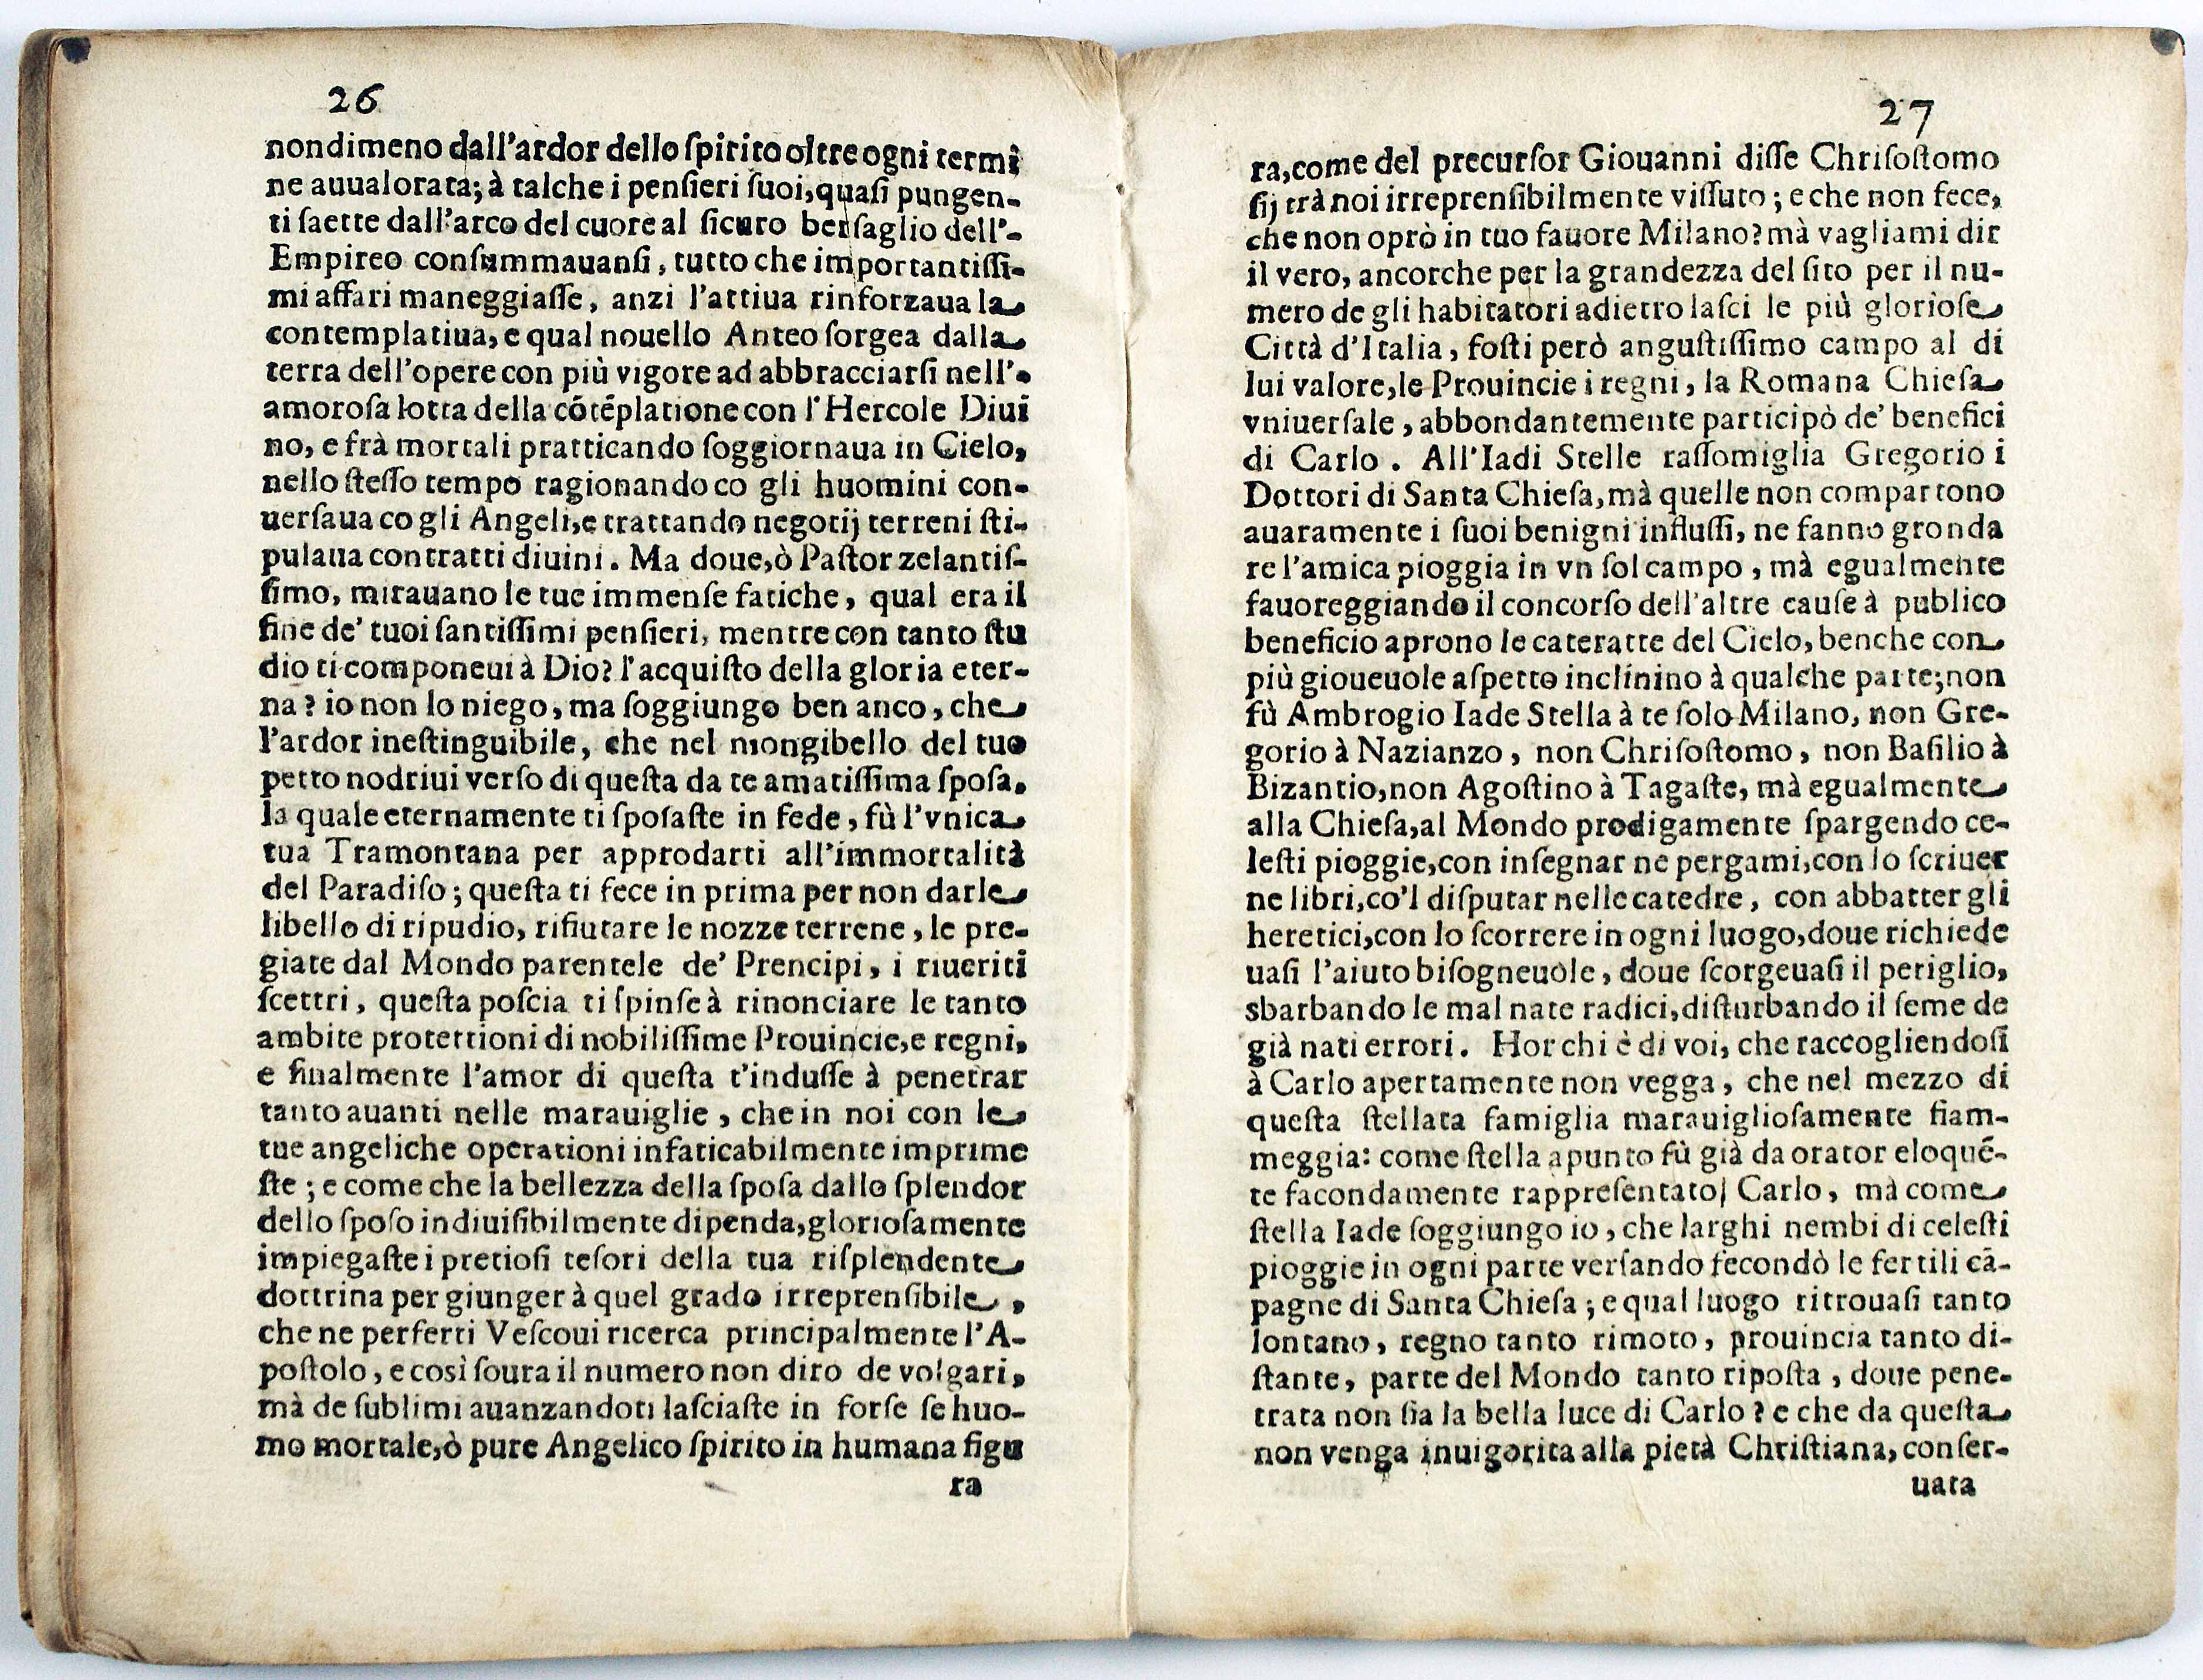 26
nondimeno dall'ardor dello ſpirito oltre ogni termi
ne auualorata; à talche i penſieri ſuoi, quaſi pungen-
ti ſaette dall'arco del cuore al ſicuro berſaglio dell'-
Empireo conſummauanſi, tutto che importantiſſi-
mi affari maneggiaſſe, anzi l'attiua rinforzaua la
contemplatiua, e qual nouello Anteo ſorgea dalla
terra dell'opere con più vigore ad abbracciarſi nell'-
amoroſa lotta della cōtēplatione con l'Hercole Diui
no, e frà mortali pratticando ſoggiornaua in Cielo,
nello ſteſſo tempo ragionando co gli huomini con-
uerſaua co gli Angeli, e trattando negotij terreni ſti-
pulaua contratti diuini. Ma doue, ò Paſtor zelantiſ-
ſimo, mirauano le tue immenſe fatiche, qual era il
fine de' tuoi ſantiſſimi penſieri, mentre con tanto ſtu
dio ti componeui à Dio? l'acquiſto della gloria eter-
na? io non lo niego, ma ſoggiungo ben anco, che
l'ardor ineſtinguibile, che nel mongibello del tuo
petto nodriui verſo di queſta da te amatiſſima ſpoſa.
la quale eternamente ti ſpoſaſte in fede, fù l'vnica
tua Tramontana per approdarti all'immortalità
del Paradiſo; queſta ti fece in prima per non darle
libello di ripudio, rifiutare le nozze terrene, le pre-
giate dal Mondo parentele de' Prencipi, i riueriti
ſcettri, queſta poſcia ti ſpinſe à rinonciare le tanto
ambite protettioni di nobiliſſime Prouincie, e regni,
e finalmente l'amor di queſta t'induſſe à penetrar
tanto auanti nelle marauiglie, che in noi con le
tue angeliche operationi infaticabilmente imprime
ſte; e come che la bellezza della ſpoſa dallo ſplendor
dello ſpoſo indiuiſibilmente dipenda, glorioſamente
impiegaſte i pretioſi teſori della tua riſplendente
dottrina per giunger à quel grado irreprenſibile,
che ne perfetti Veſcoui ricerca principalmente l'A-
poſtolo, e così ſoura il numero non diro de volgari,
mà de ſublimi auanzandoti laſciaſte in forſe ſe huo-
mo mortale, ò pure Angelico ſpirito in humana figu
ra
27
ra, come del precurſor Giouanni diſſe Chriſoſtomo
ſij trà noi irreprenſibilmente viſſuto; e che non fece,
che non oprò in tuo fauore Milano? mà vagliami dir
il vero, ancorche per la grandezza del ſito per il nu-
mero de gli habitatori adietro laſci le più glorioſe
Città d'Italia, foſti però anguſtiſſimo campo al di
lui valore, le Prouincie i regni, la Romana Chieſa
vniuerſale, abbondantemente participò de' benefici
di Carlo. All'Iadi Stelle raſſomiglia Gregorio i
Dottori di Santa Chieſa, mà quelle non compartono
auaramente i ſuoi benigni influſſi, ne fanno gronda
re l'amica pioggia in vn ſol campo, mà egualmente
fauoreggiando il concorſo dell'altre cauſe à publico
beneficio aprono le cateratte del Cielo, benche con
più gioueuole aſpetto inclinino à qualche parte; non
fù Ambrogio Iade Stella à te ſolo Milano, non Gre-
gorio à Nazianzo, non Chriſoſtomo, non Baſilio à
Bizantio, non Agoſtino à Tagaſte, mà egualmente
alla Chieſa, al Mondo prodigamente ſpargendo ce-
leſti pioggie, con inſegnar ne pergami, con lo ſcriuer
ne libri, co'l diſputar nelle catedre, con abbatter gli
heretici, con lo ſcorrere in ogni luogo, doue richiede
uaſi l'aiuto biſogneuole, doue ſcorgeuaſi il periglio,
sbarbando le mal nate radici, diſturbando il ſeme de
già nati errori. Hor chi è di voi, che raccogliendoſi
à Carlo apertamente non vegga, che nel mezzo di
queſta ſtellata famiglia marauiglioſamente fiam-
meggia: come ſtella apunto fù già da orator eloquē-
te facondamente rappreſentato Carlo, mà come
ſtella Iade ſoggiungo io, che larghi nembi di celeſti
pioggie in ogni parte verſando fecondò le fertili cā-
pagne di Santa Chieſa; e qual luogo ritrouaſi tanto
lontano, regno tanto rimoto, prouincia tanto di-
ſtante, parte del Mondo tanto ripoſta, doue pene-
trata non ſia la bella luce di Carlo? e che da queſta
non venga inuigorita alla pietà Chriſtiana, conſer-
uata